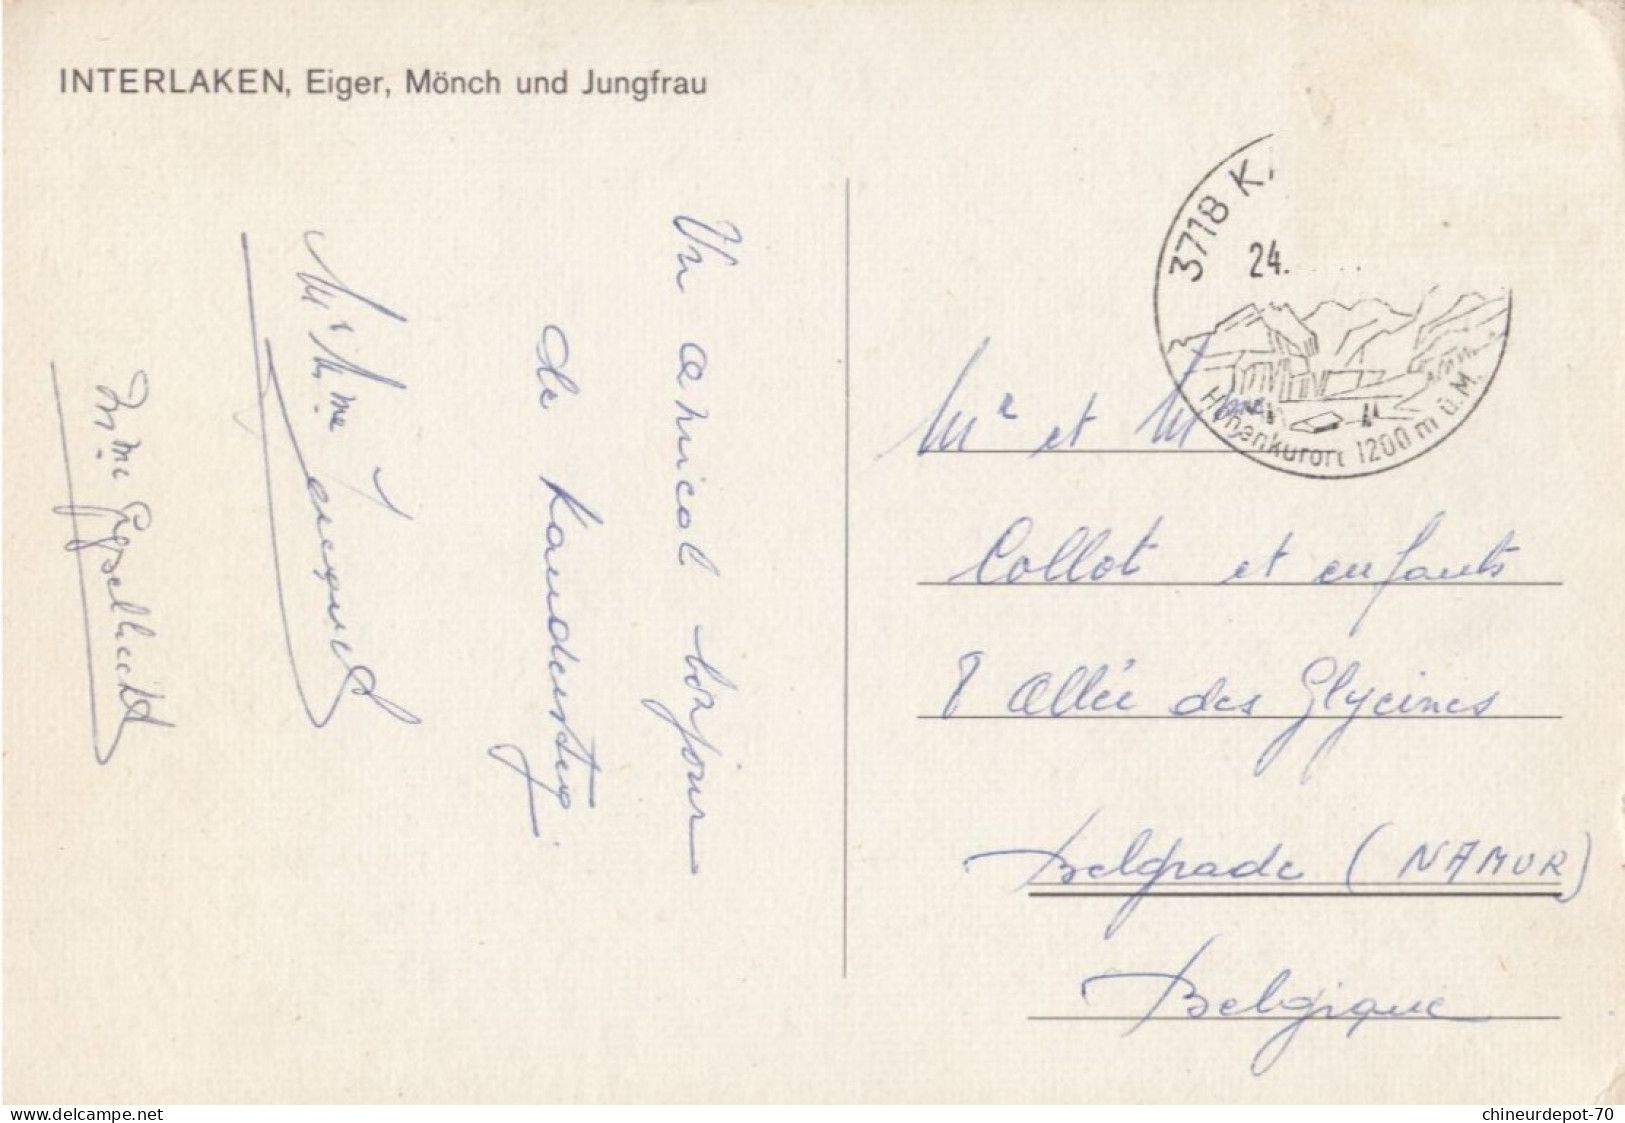 INTERLAKEN, Eiger, Mönch und Jungfrau
Un amical bonjour
de Kandersteg.
Mr & Mme
Mme
3718 K
24.
Höhenkurort 1200 m ü. M.
Mr et Mme
Collot et enfants
8 allée des Glycines
Belgrade (NAMUR)
Belgique
www.delcampe.net
chineurdepot-70